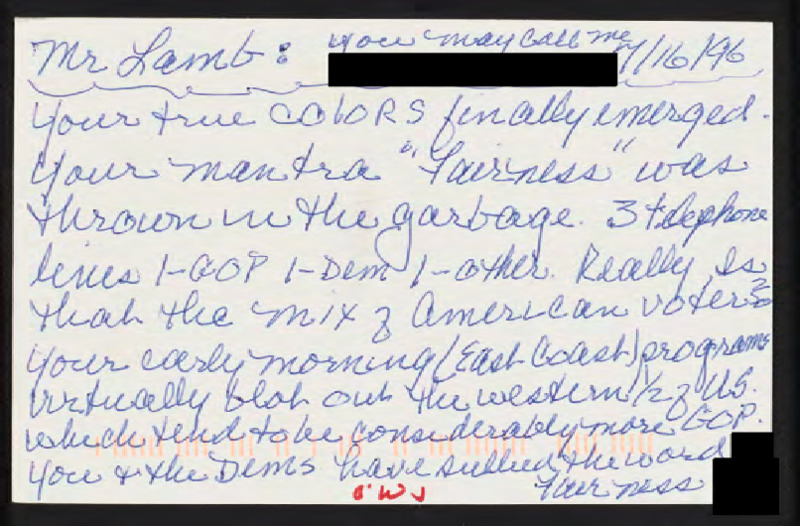 Mr Lamb: you may call me 7/16/96
Your true COLORS finally emerged.
Your mantra "Fairness" was
thrown in the garbage. 3 telephone
lines 1-GOP 1-Dem 1-other. Really, Is
that the mix of American voters?
Your early morning (East Coast) programs
virtually blot out the western 1/2 of US.
which tend to be considerably more GOP.
You & the Dems have sullied the word
Fairness